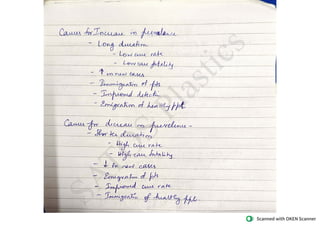 Causes for Increase in prevalence
- Long duration
- Low cure rate
- Low case fatality
- ↑ in new cases
- Immigration of pts
- Improved detectn
- Emigration of healthy ppl
Causes for decrease in prevalence -
- Shorter duration
- High cure rate
- High case fatality
- ↓ in new cases
- Emigration of pts
- Improved cure rate
- Immigration of healthy ppl.
Scanned with OKEN Scanner